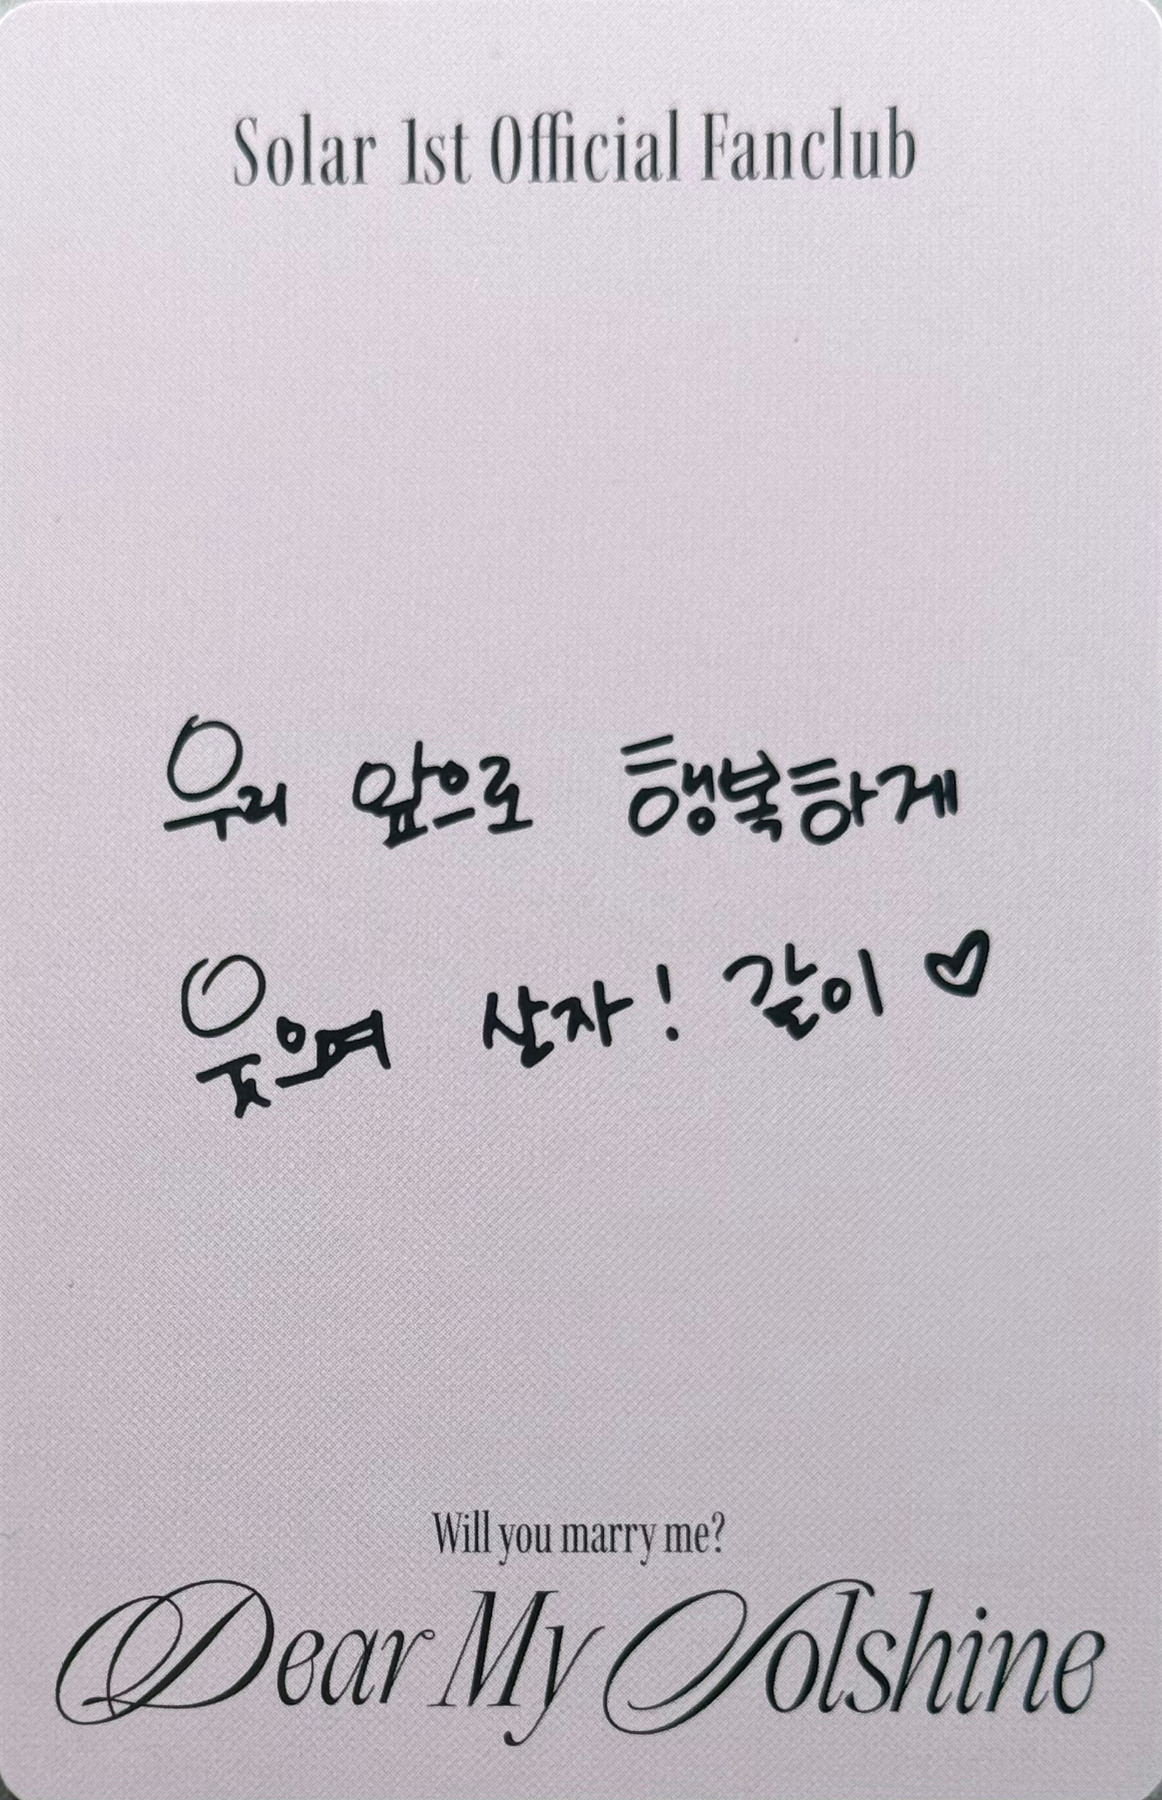 Solar 1st Official Fanclub
우리 앞으로 행복하게
웃으며 살자! 같이 ♡
Will you marry me?
Dear My Solshine